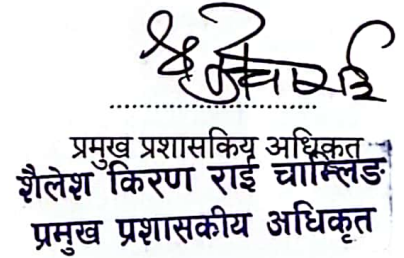 प्रमुख प्रशासकिय अधिकृत
शैलेश किरण राई चाम्लिङ
प्रमुख प्रशासकीय अधिकृत